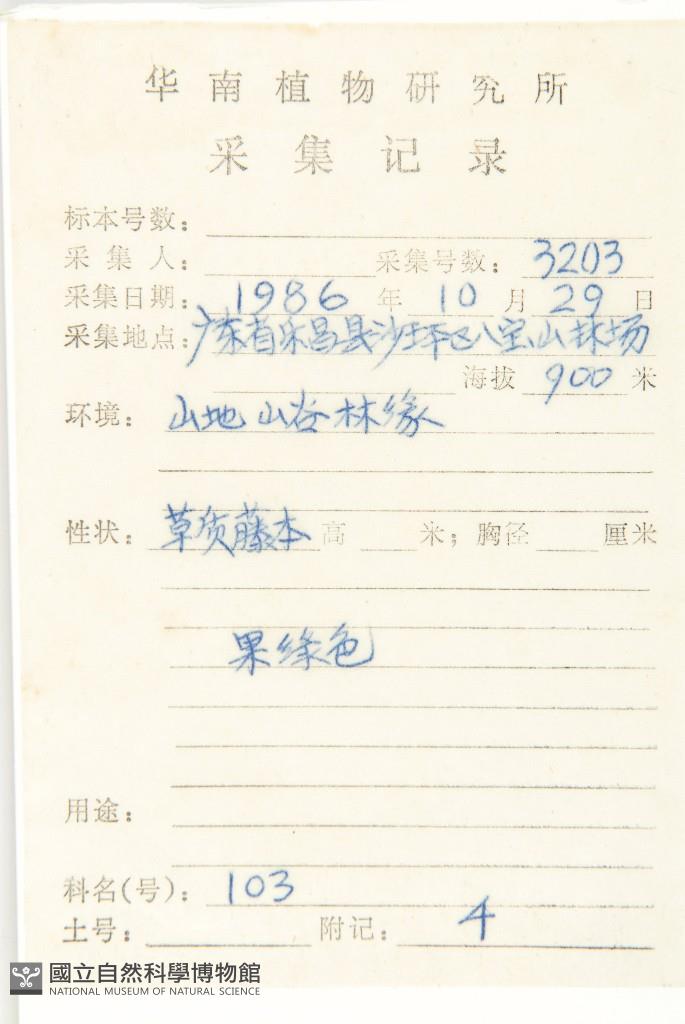 华南植物研究所
采集记录
标本号数：
采集人： 采集号数：3203
采集日期：1986年10月29日
采集地点：广东省乐昌县沙坪区八宝山林场
海拔900米
环境：山地山谷林缘
性状：草质藤本高 米；胸径 厘米
果绿色
用途：
科名(号)：103
土号： 附记：4
國立自然科學博物館
NATIONAL MUSEUM OF NATURAL SCIENCE